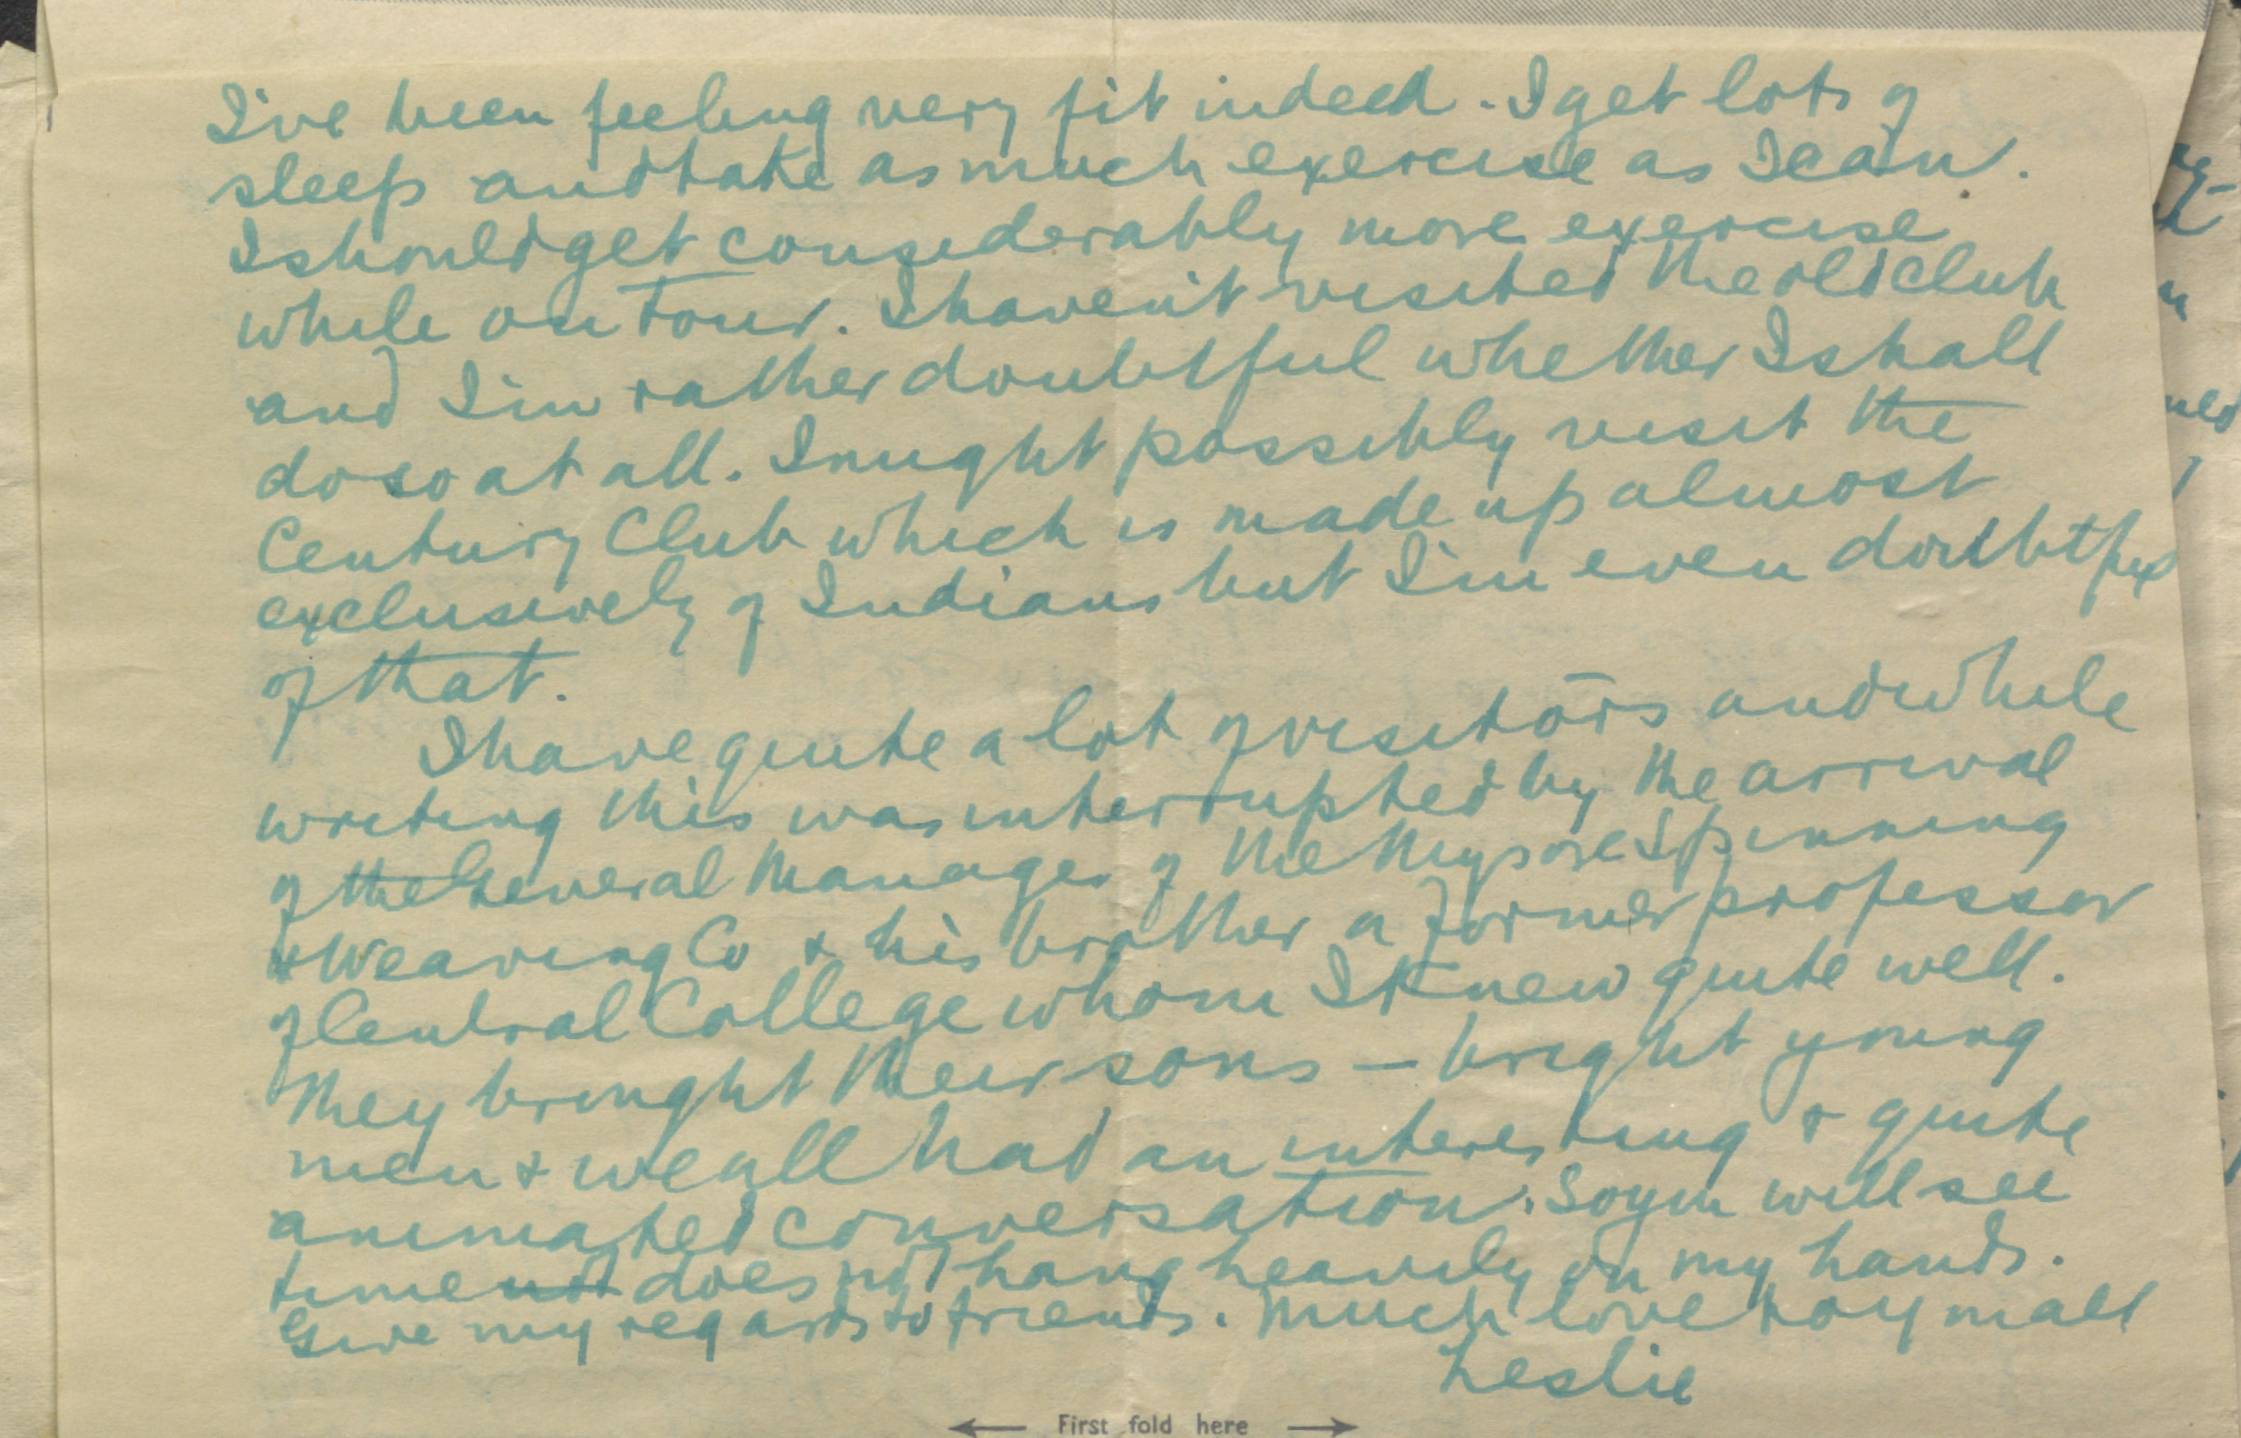 I've been feeling very fit indeed. I get lots of
sleep and take as much exercise as I can.
I should get considerably more exercise
while on tour. I haven't visited the old club
and I'm rather doubtful whether I shall
do so at all. I might possibly visit the
Century Club which is made up almost
exclusively of Indians but I'm even doubtful
of that.
I have quite a lot of visitors and while
writing this was interrupted by the arrival
of the General Manager of the Mysore Spinning
& Weaving Co & his brother a former professor
of Central College whom I knew quite well.
They brought their sons — bright young
men & we all had an interesting & quite
animated conversation. So you will see
time not does not hang heavily on my hands.
Give my regards to friends. Much love to y'all
Leslie
← First fold here →